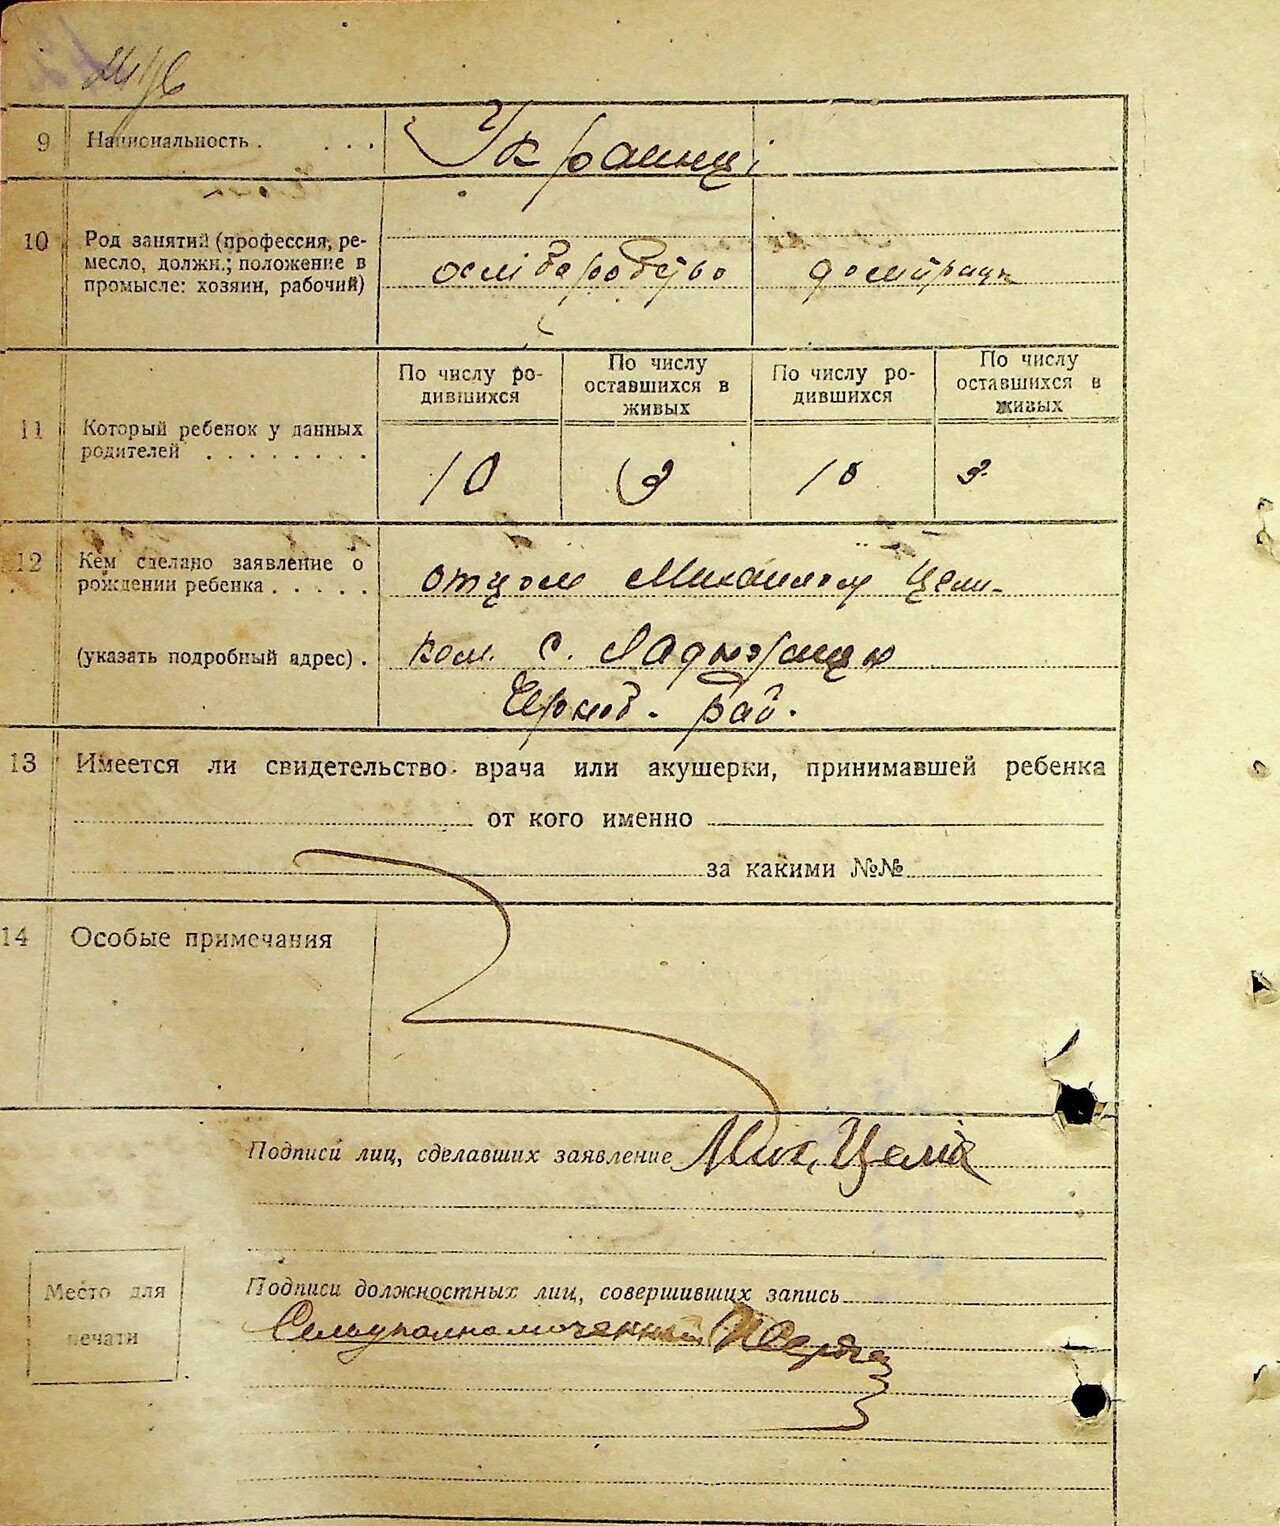 9 Национальность . . . . Українці
10 Род занятий (профессия, ре-
месло, должн.; положение в
промысле: хозяин, рабочий)
По числу ро-
дившихся
По числу
оставшихся в
живых
По числу ро-
дившихся
По числу
оставшихся в
живых
11 Который ребенок у данных
родителей . . . . . . . .
10 10
12 Кем сделано заявление о
рождении ребенка . . . . . отцом Михаилом Цели-
(указать подробный адрес) . ком. с.
Черноб. рай.
13 Имеется ли свидетельство врача или акушерки, принимавшей ребенка
от кого именно
за какими №№
14 Особые примечания
Подписи лиц, сделавших заявление Мих. Целік
Место для
печати
Подписи должностных лиц, совершивших запись
Сельуполномоченный